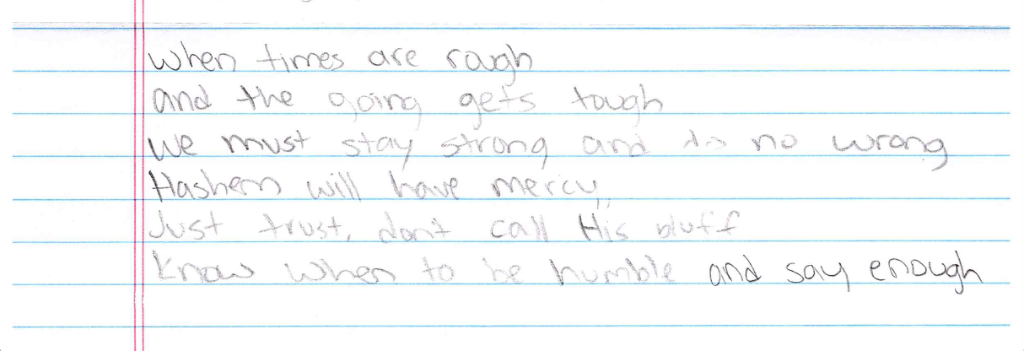 when times are rough
and the going gets tough
we must stay strong and do no wrong
Hashem will have mercy
Just trust, don't call His bluff
Know when to be humble and say enough